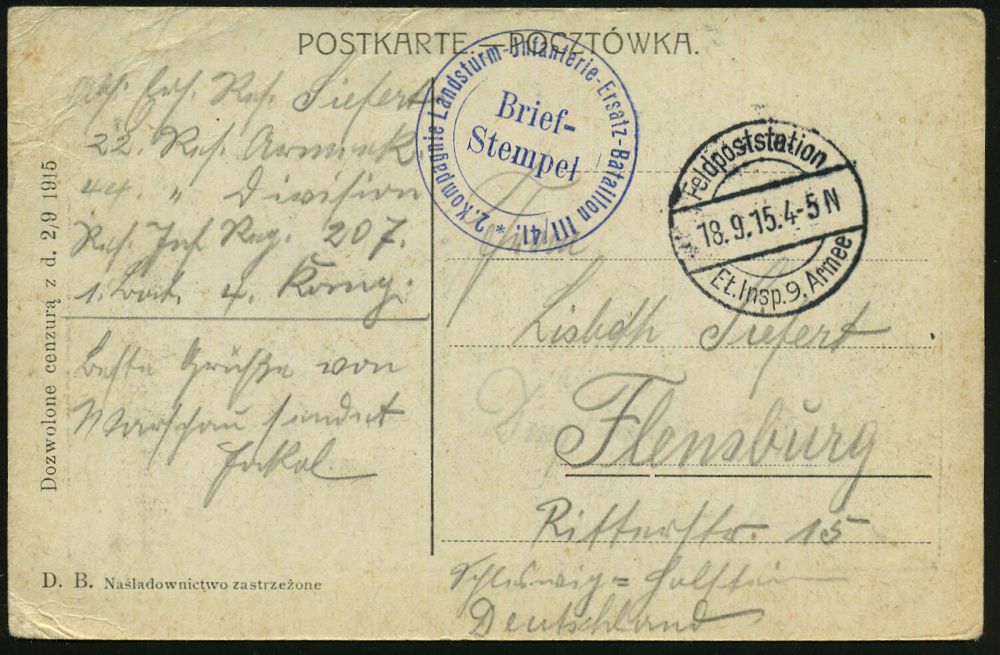 POSTKARTE.—POCZTÓWKA.
* 2. Kompagnie Landsturm-Infanterie-Ersatz-Bataillon III 41.
Brief-
Stempel
Feldpoststation
18.9.15.4-5 N
Et.Insp.9.Armee
Res. Siefert
22. Res. Armeek.
44. " Division
Res. Inf Reg. 207.
1. Bat. 4. Komp.
Beste Grüße von
Warschau sendet
Jakob
Lisbeth Siefert
Flensburg
Ritterstr. 15
Schleswig=Holstein
Deutschland
Dozwolone cenzurą z d. 2/9 1915
D. B. Naśladownictwo zastrzeżone